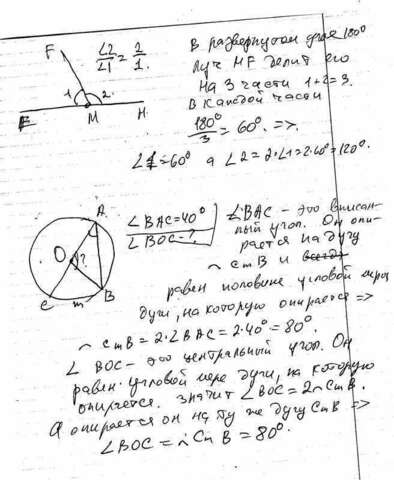 F
∠2/∠1 = 2/1.
1 2
E M H.
В развернутом угле 180°
луч MF делит его
на 3 части 1+2=3.
В каждой части
180°/3 = 60°. =>.
∠1=60° а ∠2=2·∠1=2·60°=120°.
A
O ?
C m B
∠BAC=40°
∠BOC-?
∠BAC - это вписан-
ный угол. Он опи-
рается на дугу
◠CmB и
равен половине угловой меры
дуги, на которую опирается =>
◠CmB = 2·∠BAC = 2·40° = 80°.
∠ BOC - это центральный угол. Он
равен угловой мере дуги, на которую
опирается. Значит ∠BOC = ◠CmB.
А опирается он на ту же дугу CmB =>
∠BOC = ◠CmB = 80°.